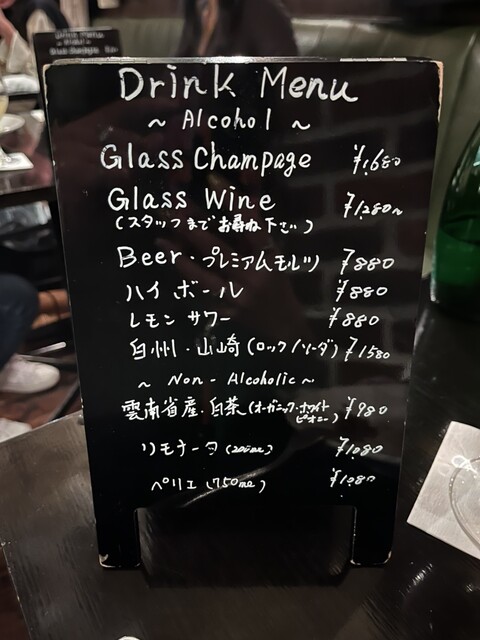 Drink Menu
~ Alcohol ~
Glass Champage ¥1,680
Glass Wine ¥1,280~
(スタッフまでお尋ね下さい)
Beer・プレミアムモルツ ¥880
ハイボール ¥880
レモンサワー ¥880
白州・山崎(ロック/ソーダ) ¥1580
~ Non-Alcoholic ~
雲南省産・白茶(オーガニック・ホワイト
ピオニー) ¥980
リモナータ(200ml) ¥1080
ペリエ(750ml) ¥1080
Drink Menu